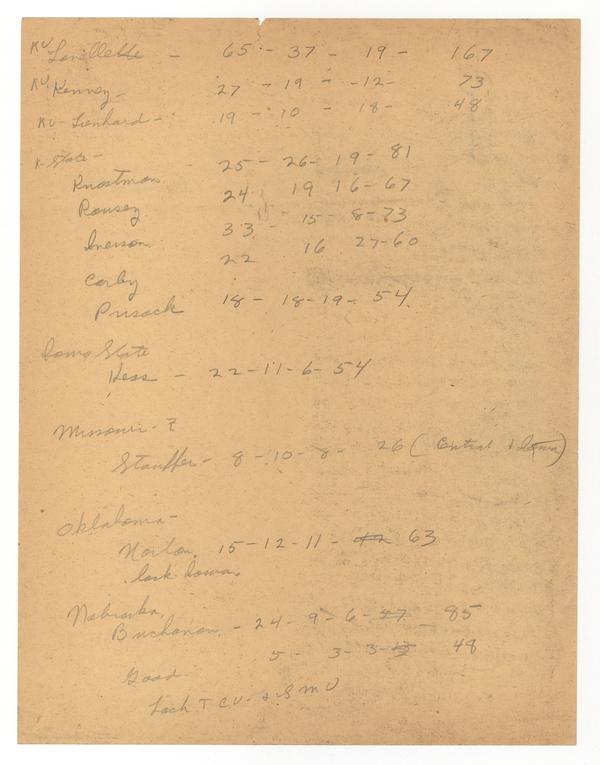 KU Lovellette - 65 - 37 - 19 - 167
KU Kenney - 27 - 19 - 12 - 73
KU - Lienhard - 19 - 10 - 18 - 48
K-State -
Knostman - 25 - 26 - 19 - 81
Rousey 24 19 16 - 67
Iverson 33 - 15 - 8 - 73
Carby 22 16 27 - 60
Prisock 18 - 18 - 19 - 54
Iowa State
Hess - 22 - 11 - 6 - 54
Missouri - ?
Stauffer - 8 - 10 - 8 - 26 (Central & Iowa)
Oklahoma -
Norton 15 - 12 - 11 - 63
lack Iowa.
Nebraska,
Buchanan - 24 - 9 - 6 - 37 - 85
Good 5 - 3 - 3 - 13 48
Lack T C U - & S M U